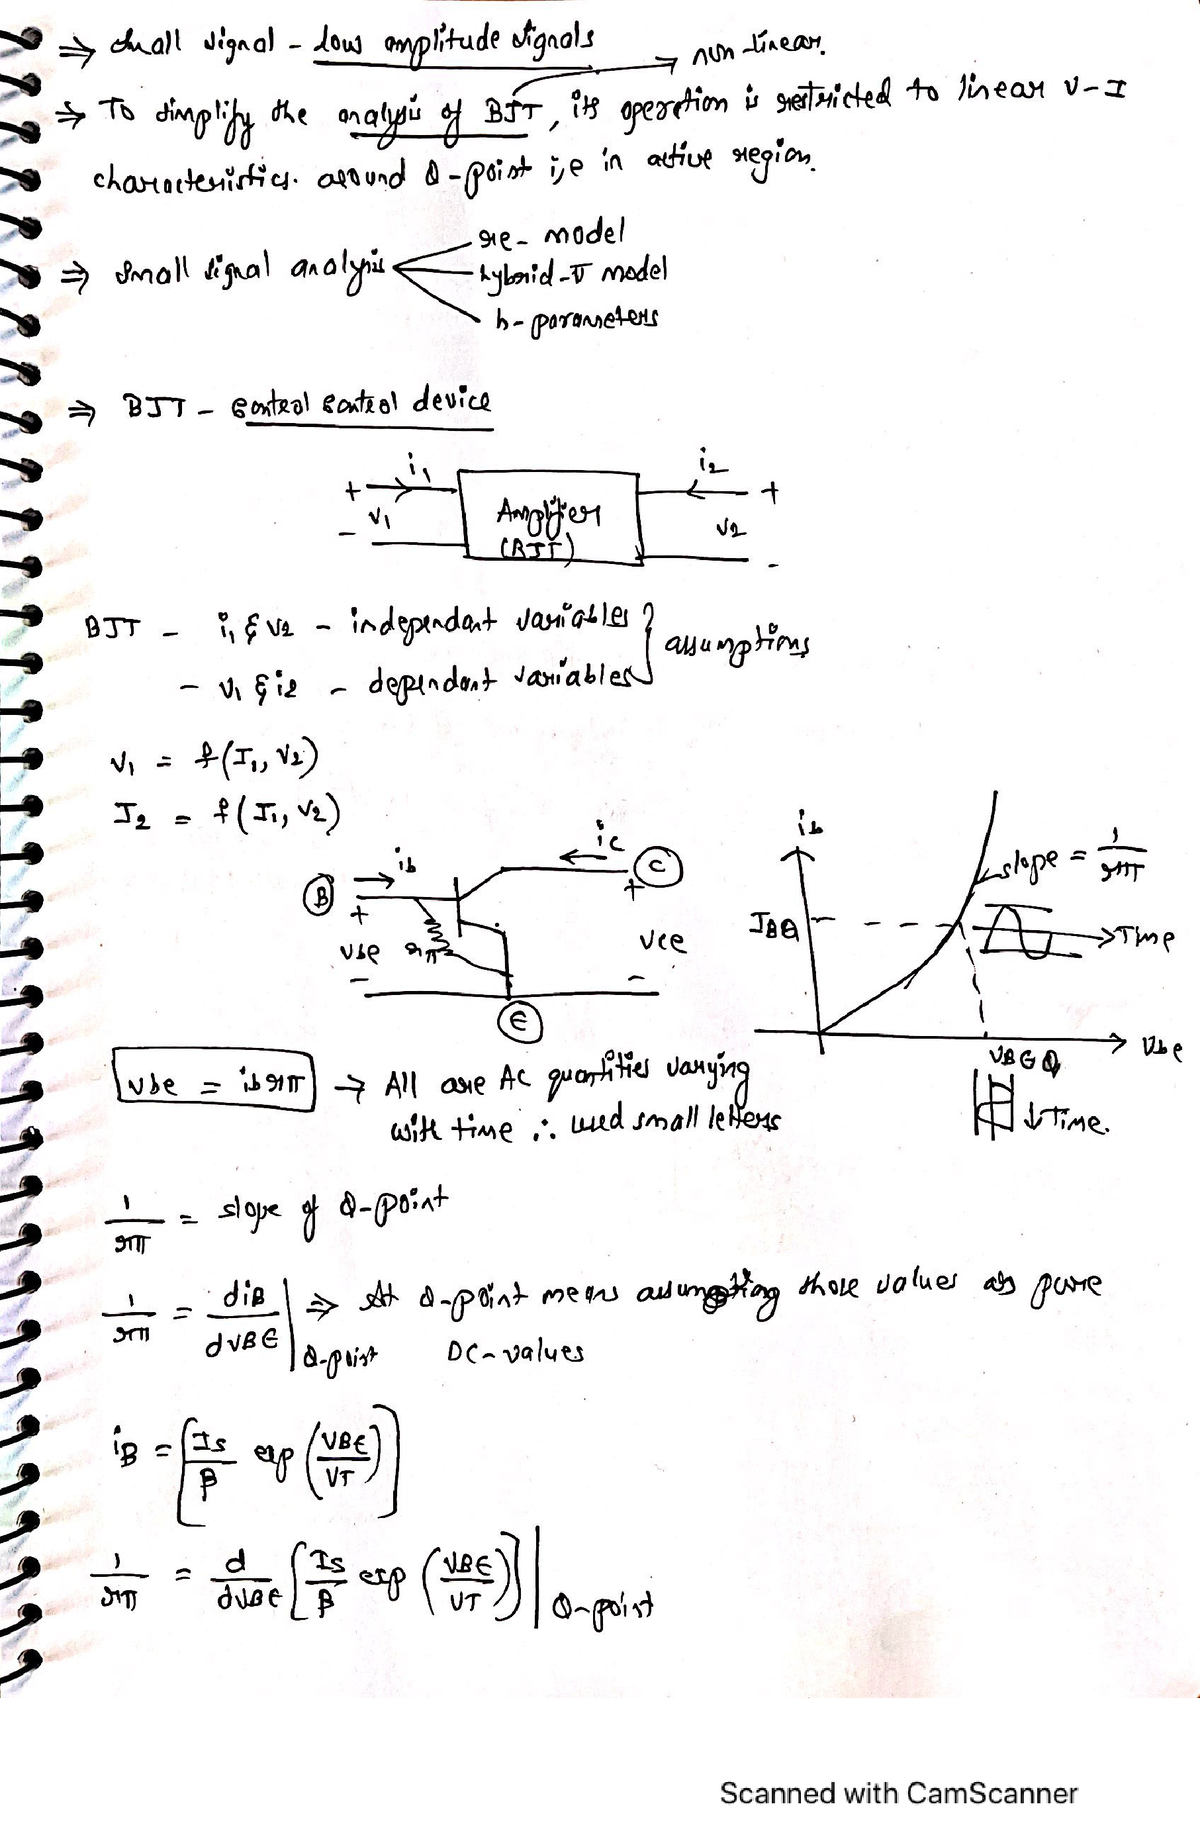 ⇒ Small signal - low amplitude signals
→ non-linear.
⇒ To simplify the analysis of BJT, its operation is restricted to linear V-I
characteristics. around Q-point i,e in active region.
re- model
⇒ Small signal analysis
hybrid-π model
h-parameters
⇒ BJT - control control device
+ i1 i2 +
v1 Amplifier v2
- (BJT) -
BJT - i1 & v2 - independant variables } assumptions
- v1 & i2 - dependant variables
v1 = f(I1, v2)
I2 = f(I1, v2)
ib
slope = 1/rπ
ib ic
B C
+ +
IBQ
→Time
vbe rπ vce
- -
E
→ Vbe
VBEQ
↓Time.
vbe = ib rπ → All are AC quantities varying
with time ∴ used small letters
1/rπ = slope of Q-point
1/rπ = diB/dVBE |Q-point ⇒ At Q-point means assumpting those values as pure
DC-values
iB = [Is/β exp (VBE/VT)]
1/rπ = d/dVBE [Is/β exp (VBE/VT)] |Q-point
Scanned with CamScanner